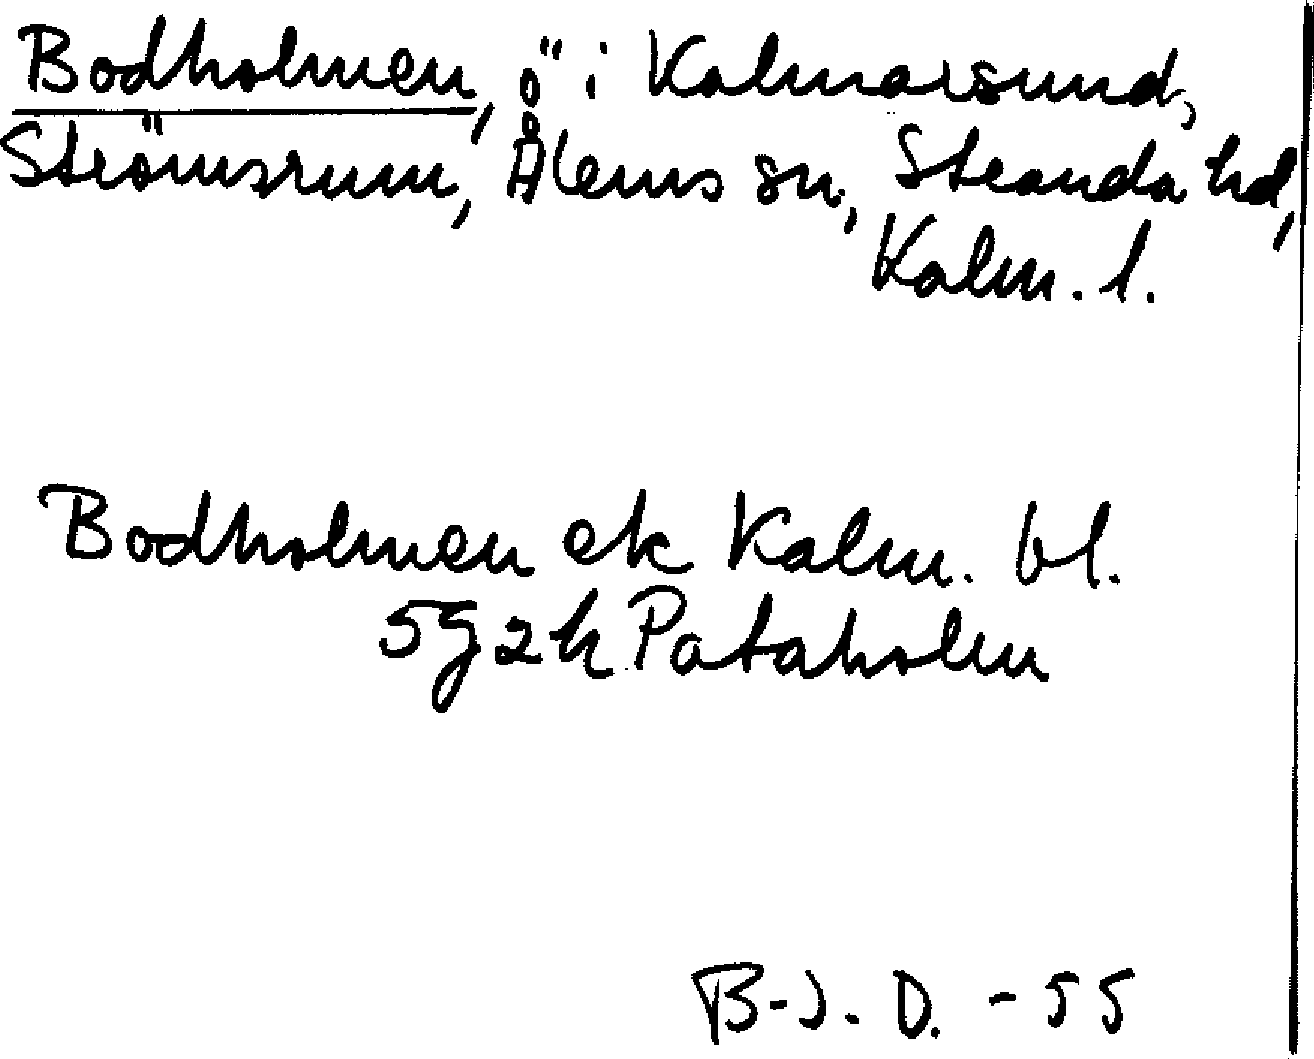 Bodholmen, ö i Kalmarsund,
Strömsrum, Ålems sn, Stranda hd,
Kalm. l.
Bodholmen ek Kalm. bl.
5g2h Pataholm
B-J. D. - 55